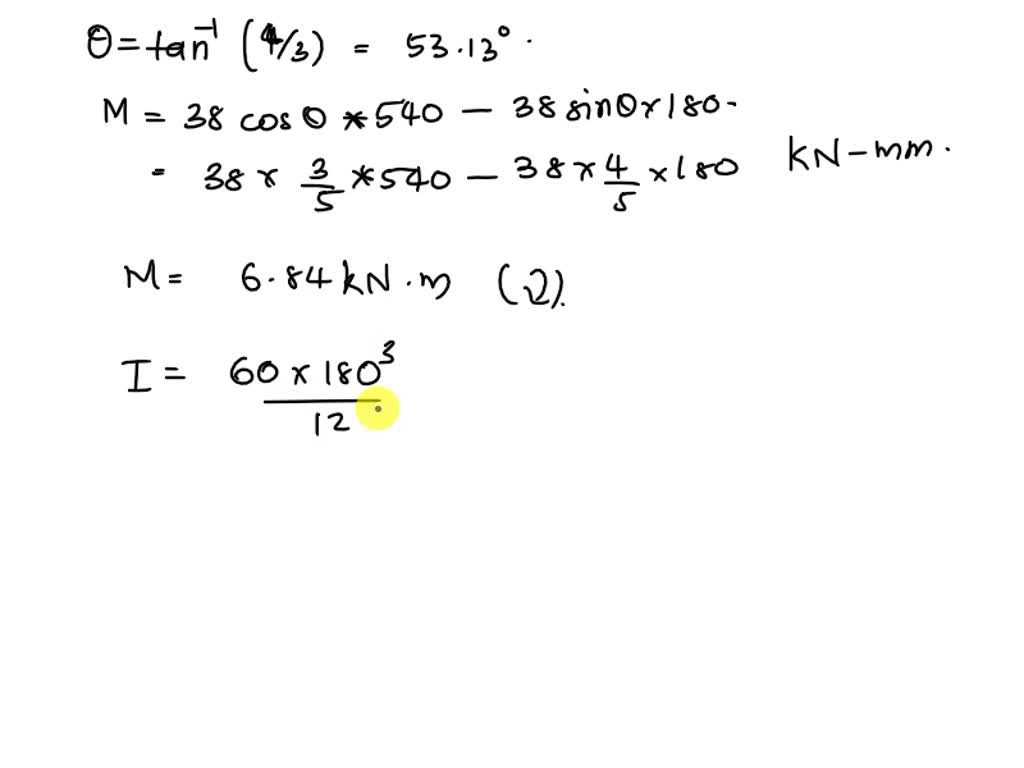 θ = tan⁻¹ (4/3) = 53.13° .
M = 38 cos θ * 540 – 38 sin θ × 180 .
= 38 × 3/5 * 540 – 38 × 4/5 × 180 kN – mm .
M = 6.84 kN . m (↻).
I = 60 × 180³ / 12